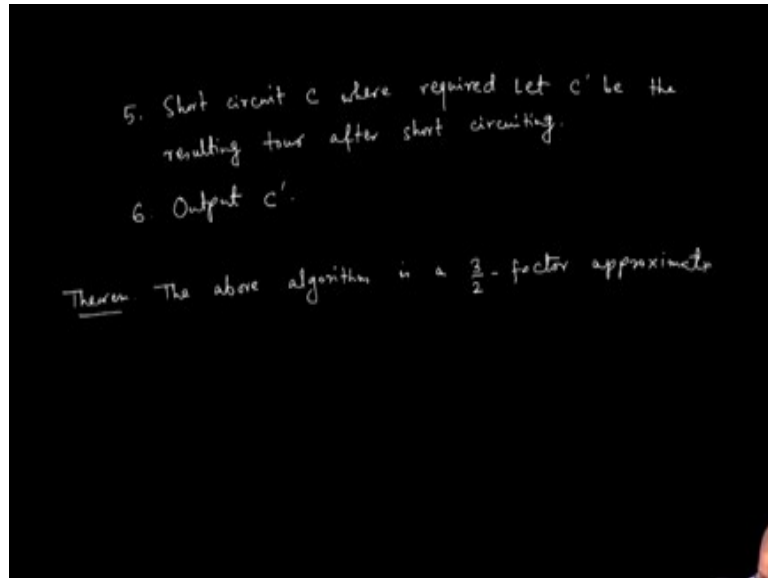 5. Short circuit C where required Let C' be the
resulting tour after short circuiting.
6. Output C'.
Theorem. The above algorithm is a 3/2 - factor approximatn